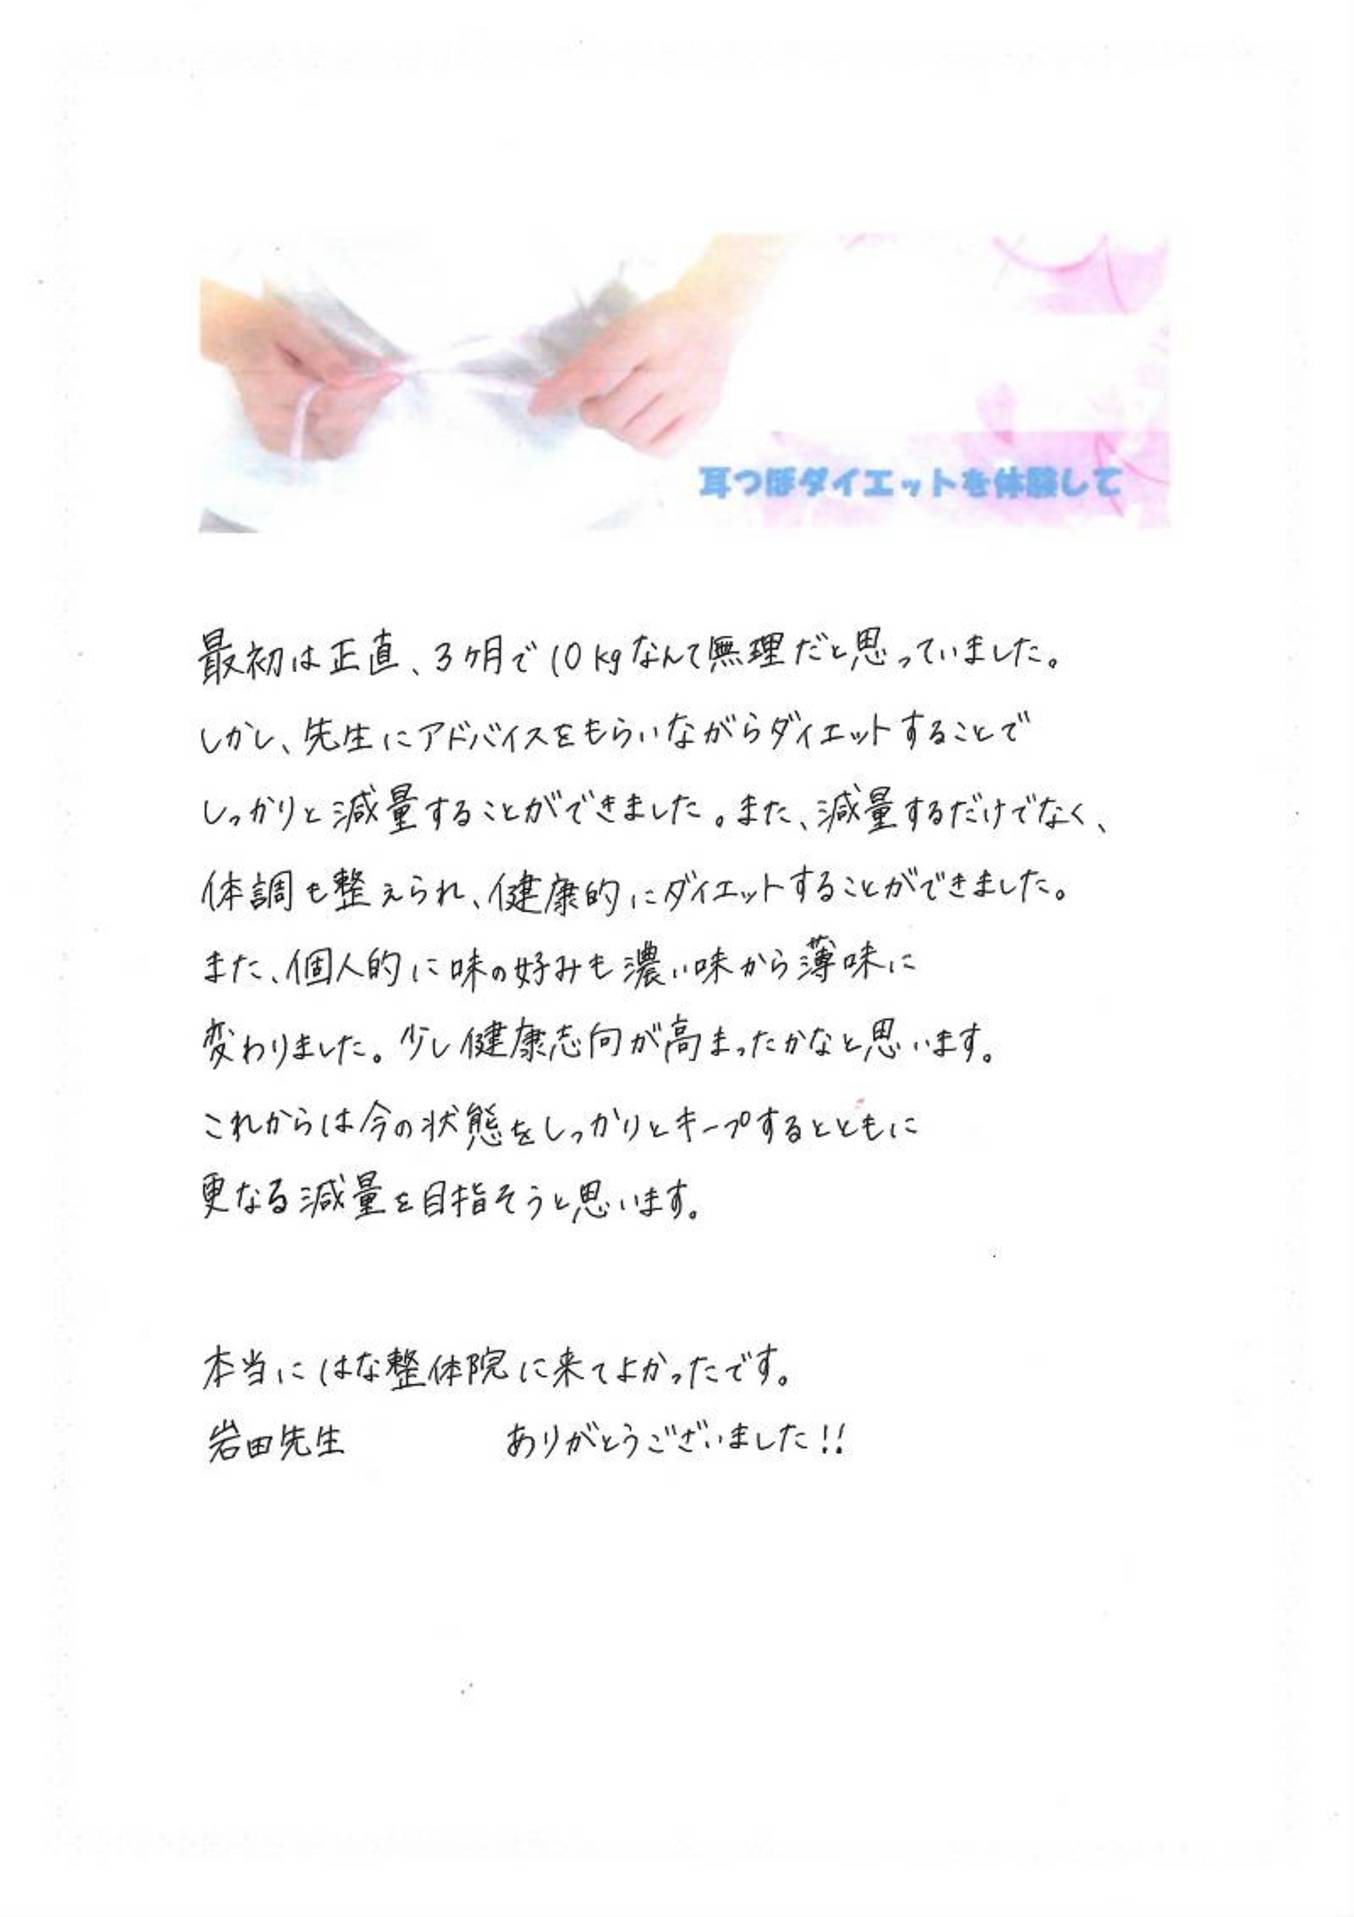 耳つぼダイエットを体験して
最初は正直、3ヶ月で10kgなんて無理だと思っていました。
しかし、先生にアドバイスをもらいながらダイエットすることで
しっかりと減量することができました。また、減量するだけでなく、
体調も整えられ、健康的にダイエットすることができました。
また、個人的に味の好みも濃い味から薄味に
変わりました。少し健康志向が高まったかなと思います。
これからは今の状態をしっかりとキープするとともに
更なる減量を目指そうと思います。
本当にはな整体院に来てよかったです。
岩田先生 ありがとうございました!!